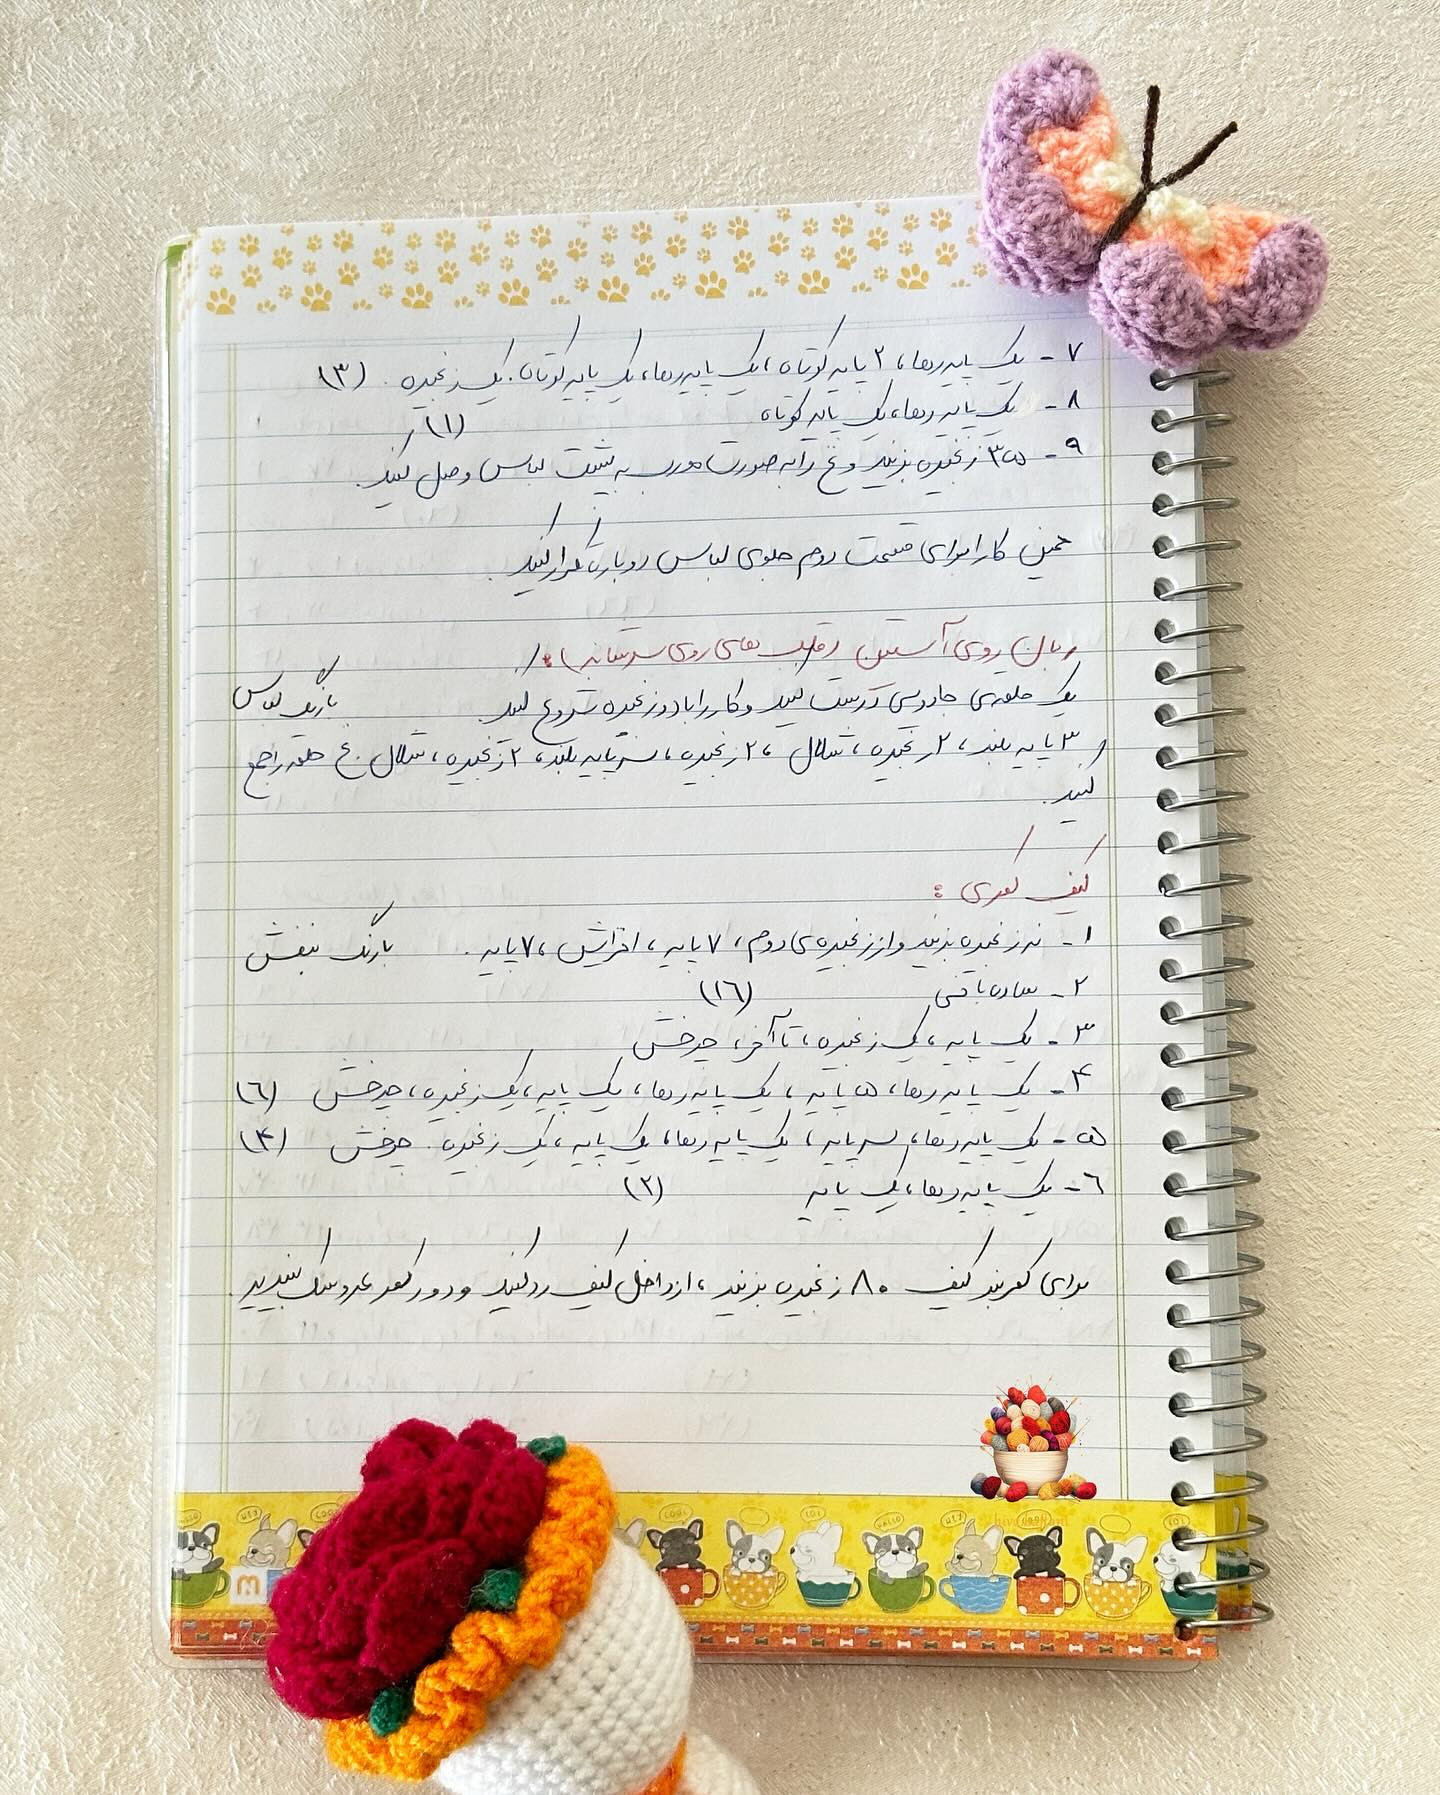 ۷- یک پایه رها، ۲ پایه کوتاه، یک پایه رها، یک پایه کوتاه. یک زنجیره. (۳)
۸- یک پایه رها، یک پایه کوتاه (۱)
۹- ۳۵ زنجیره بزنید و نخ را به صورت مورب به پشت لباس وصل کنید.
همین کار را برای قسمت دوم جلوی لباس دوباره تکرار کنید.
روبان روی آستین (قلب های روی سرشانه):
یک حلقه‌ی جادویی درست کنید و کار را با دو زنجیره شروع کنید. با رنگ لباس
۳ پایه بلند، ۲ زنجیره، شلال، ۲ زنجیره، سه پایه بلند، ۲ زنجیره، شلال. نخ حلقه را جمع
کنید.
کیف کمری:
۱- نه زنجیره بزنید و از زنجیره‌ی دوم، ۷ پایه، افزایش، ۷ پایه. با رنگ بنفش
۲- ساده بافی (۱۶)
۳- یک پایه، یک زنجیره، تا آخر، چرخش
۴- یک پایه رها، ۵ پایه، یک پایه رها، یک پایه، یک زنجیره، چرخش (۶)
۵- یک پایه رها، سه پایه، یک پایه رها، یک پایه، یک زنجیره. چرخش (۴)
۶- یک پایه رها، یک پایه (۲)
برای کمربند کیف ۸۰ زنجیره بزنید، از داخل کیف رد کنید و دور کمر عروسک ببندید.